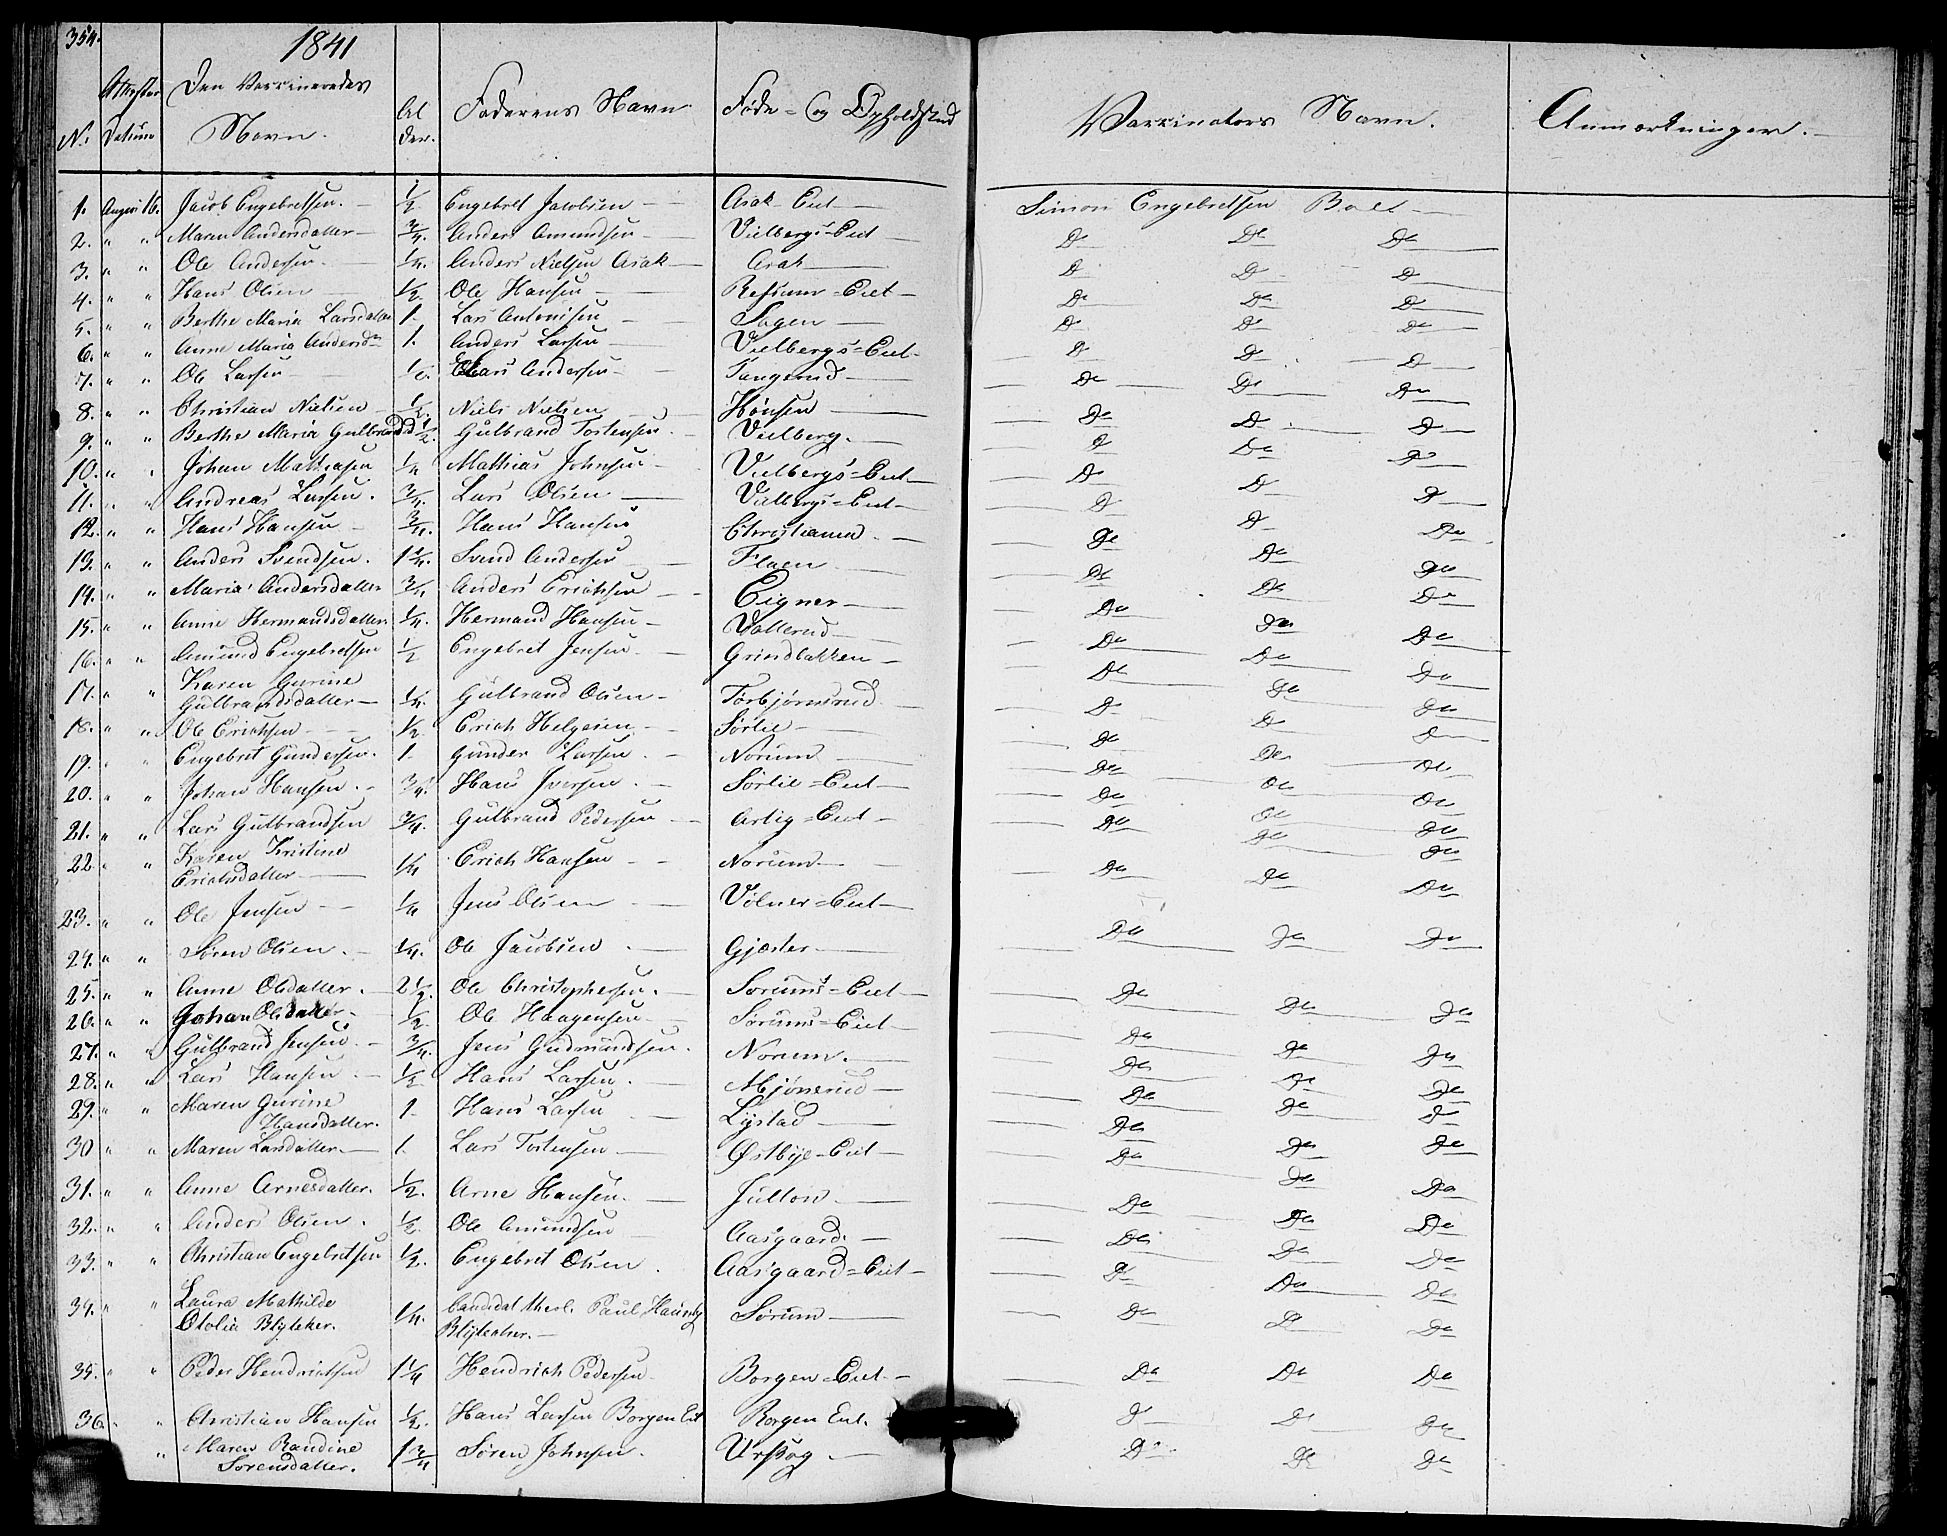 354.
1841
Nr: Attester Datum Den Vaccineredes Navn. Alder. Faderens Navn Føde- og Opholdsted Vaccinators Navn. Anmærkninger.
1. August 16. Jacob Engebretsen. ½ Engebret Jacobsen Asak Eiet Simon Engebretsen Boll
2. " " Maren Andersdatter ¾. Anders Amundsen Vielbergs=Eiet Do Do Do
3. " " Ole Andersen. ¼. Anders Nielsen Asak Asak Do Do Do
4. " " Hans Olsen ½ Ole Hansen Refsum=Eiet Do Do Do
5. " " Berthe Maria Larsdatter 1. Lars Antonisen Sagen Do Do Do
6. " " Anne Maria Andersdr 1. Anders Larsen Vielbergs=Eiet Do Do Do
7. " " Ole Larsen Lars Andersen Tangerud Do Do Do
8. " " Christian Nielsen ½. Niels Nielsen Hønsen Do Do Do
9. " " Berthe Maria Gulbrandsd ½. Gulbrand Tostensen. Vielberg. Do Do Do
10. " " Johan Mathiasen ¼ Mathias Johnsen Vielbergs=Eiet Do Do Do
11. " " Andreas Larsen. ¾. Lars Olsen Vielbergs=Eiet Do Do Do
12. " " Hans Hansen ¾. Hans Hansen Christiania. Do Do Do
13. " " Anders Svendsen. 1¼. Svend Andersen Flaen Do Do Do
14. " " Maria Andersdatter ¾ Anders Erichsen Eigner Do Do Do
15. " " Anne Hermandsdatter. ¼. Hermand Hansen Vallerud Do Do Do
16. " " Amund Engebretsen ½ Engebret Jensen. Grindbakken Do Do Do
17. " " Karen Gurine
Gulbrandsdatter ¼. Gulbrand Olsen Torbjørnsrud Do Do Do
18. " " Ole Erichsen ½ Erich Helgesen Sørlie Do Do Do
19. " " Engebret Gundersen. 1. Gunder Larsen. Norum Do Do Do
20. " " Johan Hansen. ¾. Hans Iversen. Sørlie=Eiet Do Do Do
21. " " Lars Gulbrandsen ¾. Gulbrand Pedersen Arteig=Eiet Do Do Do
22. " " Karen Kristine
Erichsdatter ¼ Erich Hansen Norum Do Do Do
23. " " Ole Jensen ¼ Jens Olsen Vølner=Eiet Do Do Do
24. " " Søren Olsen. ¼. Ole Jacobsen Gjæster Do Do Do
25. " " Anne Olsdatter. 2½. Ole Christophersen. Sorums=Eiet Do Do Do
26. " " Johan Olsdatter ½ Ole Haagensen Sørums=Eiet Do Do Do
27. " " Gulbrand Jensen. ¾. Jens Gudmundsen. Norum. Do Do Do
28. " " Lars Hansen ½ Hans Larsen. Mjønerud Do Do Do
29. " " Maren Gurine
Hansdatter. 1. Hans Larsen Lystad Do Do Do
30 " " Maren Larsdatter. 1. Lars Tostensen Østbye=Eiet Do Do Do
31. " " Anne Arnesdatter. ½. Arne Hansen. Julton Do Do Do
32. " " Anders Olsen. ½ Ole Amundsen Aasgaard. Do Do Do
33. " " Christian Engebretsen ½. Engebret Olsen. Aasgaard=Eiet Do Do Do
34. " " Laura Mathilde
Otolia Blÿteker. ¼. Candidat theol: Paul Hansen
Blÿtecker. Sørum Do Do Do
35. " " Peder Hendrichsen 1¼ Hendrich Pedersen Borgen=Eiet. Do Do Do
36. " " Christian Hansen ½. Hans Larsen Borgen Eiet Borgen Eiet. Do Do Do
" Maren Randine
Sorensdatter. 1¾ Søren Johnsen. Urskog Do Do Do